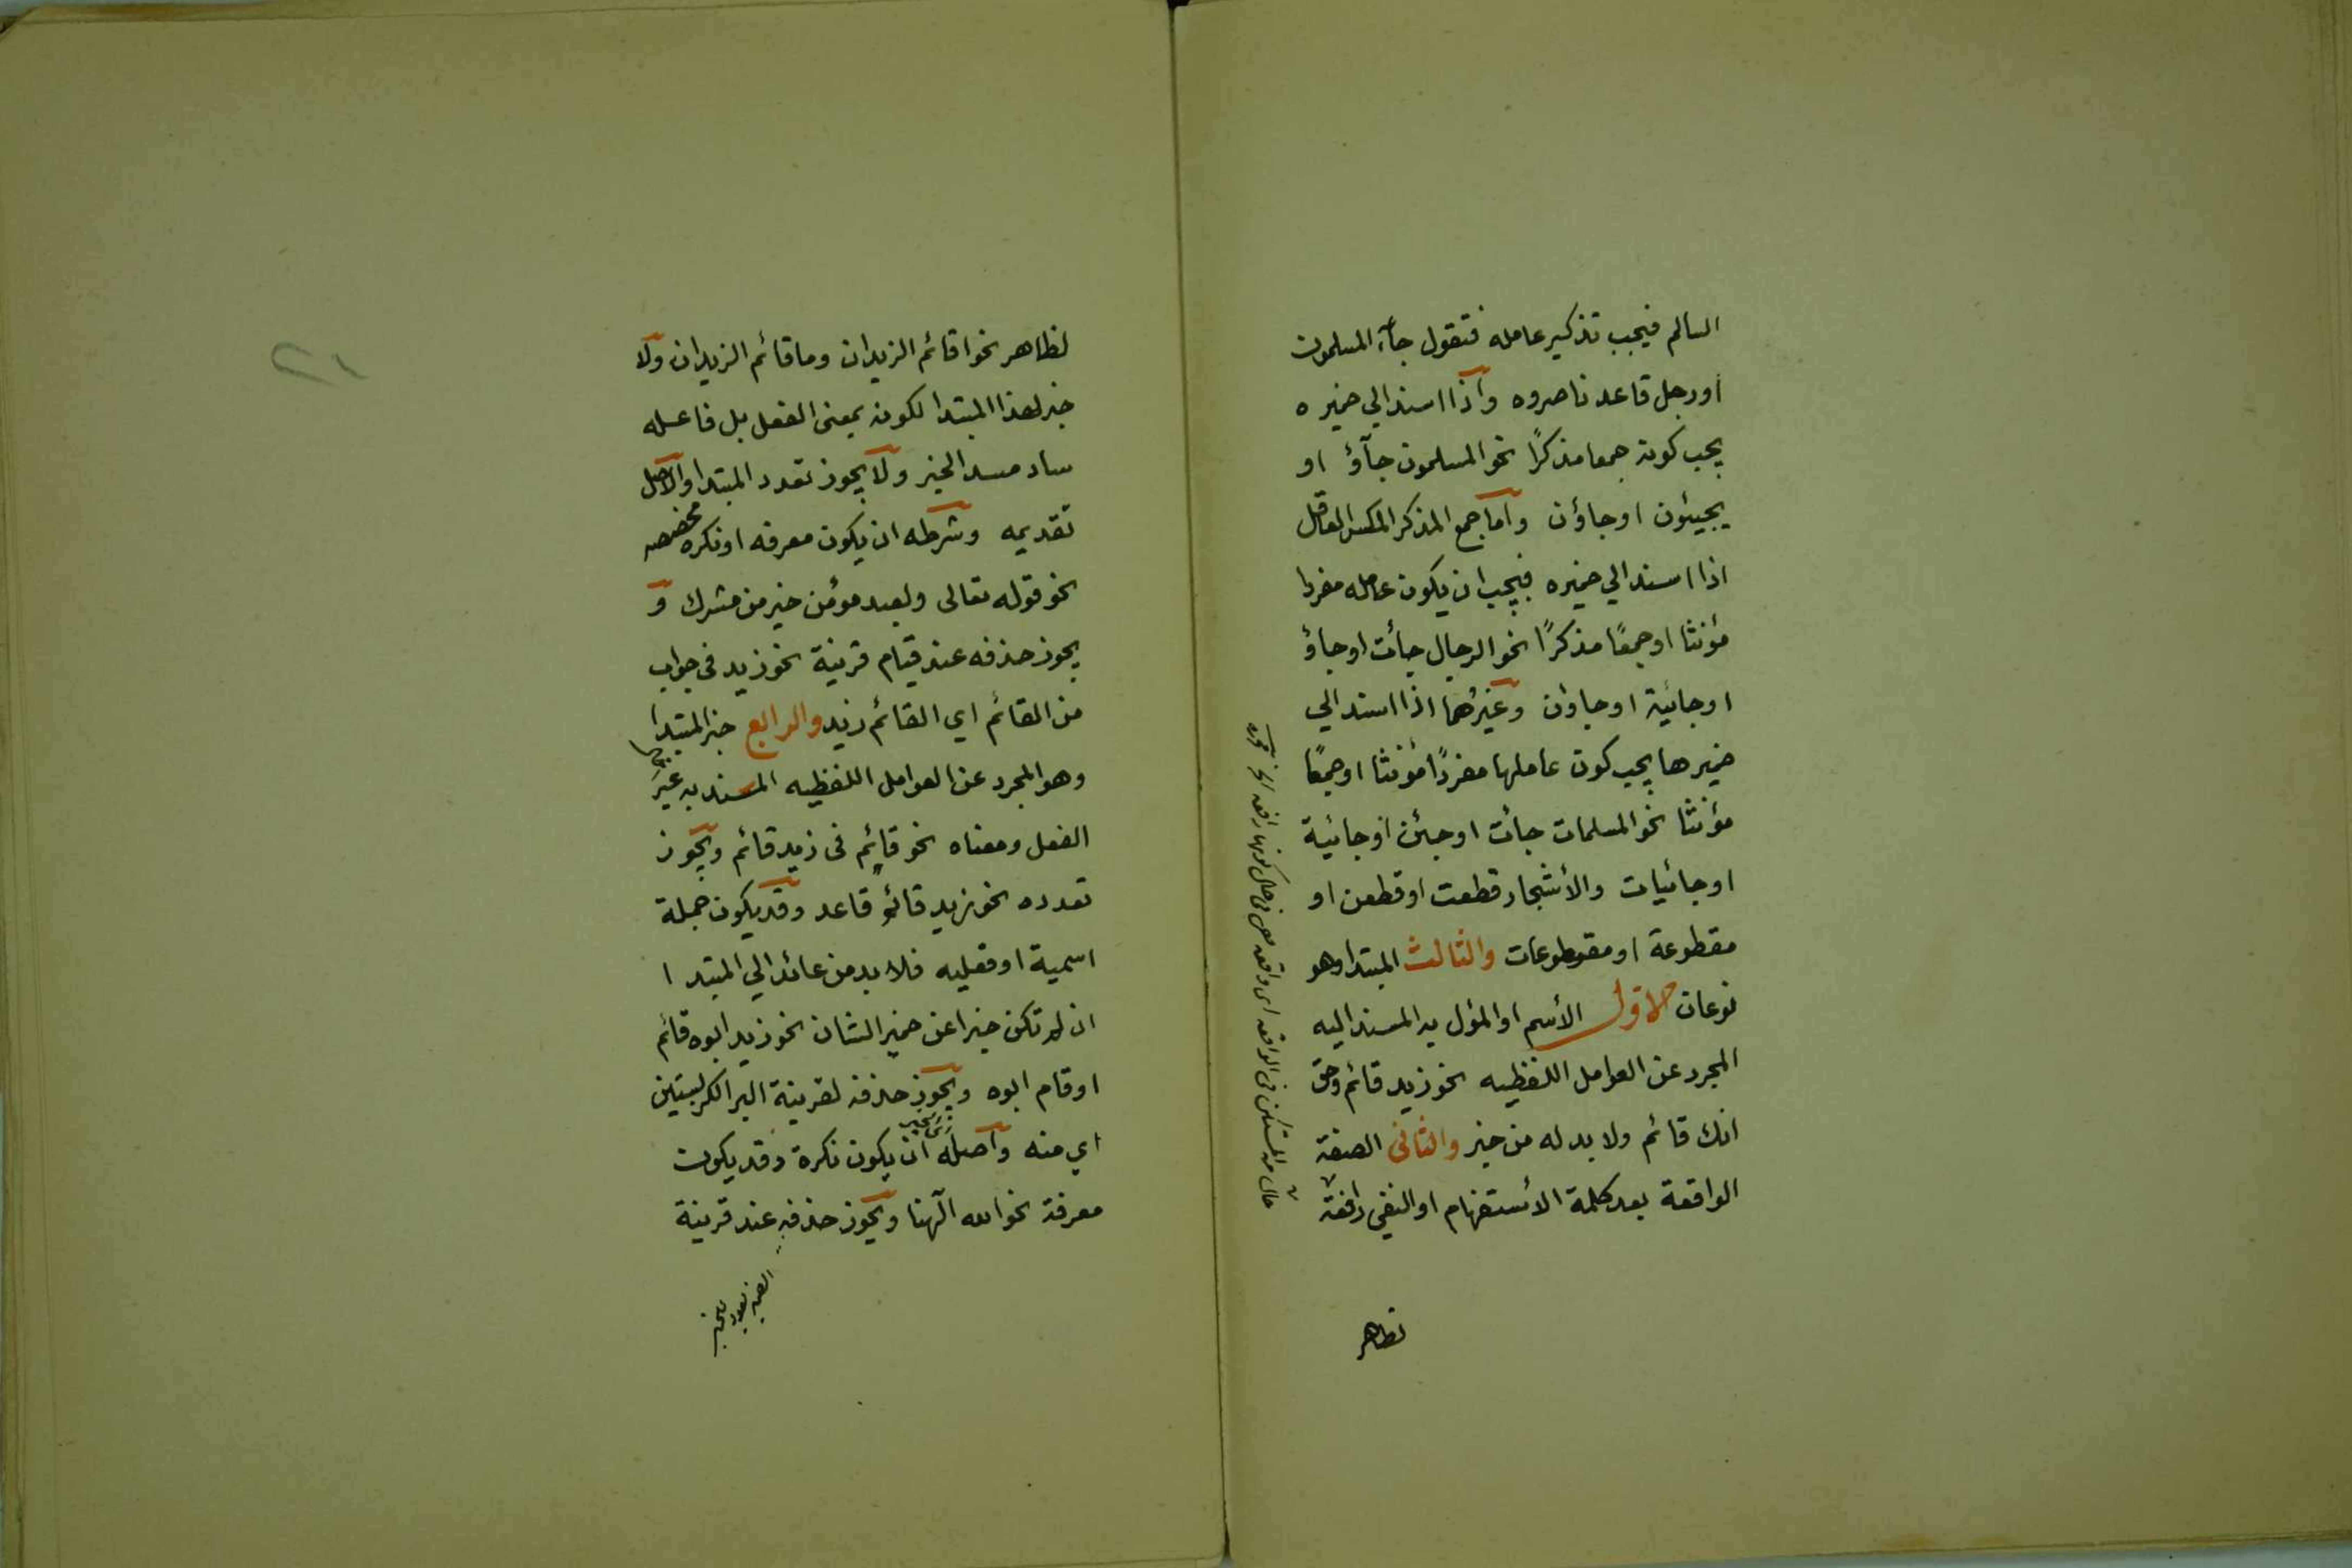 السالم فيجب تذكير عامله فتقول جاء المسلمون
او رجل قاعد ناصروه واذا اسند الي ضميره
يجب كونه جمعا مذكرًا نحو المسلمون جآؤ او
يجيئون او جاؤن واما جمع المذكر المكسر العاقل
اذا اسند الي ضميره فيجب ان يكون عامله مفردا
مؤنثا او جمعًا مذكرًا نحو الرجال جائت او جاؤ
او جائية او جاوان وغيرهما اذا اسند الي
ضميرها يجب كون عاملها مفردًا مؤنثا او جمعًا
مؤنثا نحو المسلمات جائت او جئن او جائية
او جائيات والأشجار قطعت او قطعن او
مقطوعة او مقطوعات والثالث المبتدا وهو
نوعان الاول الأسم او المؤل به المسند اليه
المجرد عن العوامل اللفظيه نحو زيد قائم وحق
انك قائم ولا بد له من خبر والثاني الصفة
الواقعة بعد كلمة الأستفهام او النفي رافعة
لظاهر
لظاهر نحو اقائم الزيدان وما قائم الزيدان ولا
خبر لهذا المبتدا لكونه بمعنى الفعل بل فاعله
ساد مسد الخبر ولا يجوز تعدد المبتدا والاصل
تقديمه وشرطه ان يكون معرفه او نكره مخصصه
نحو قوله تعالى ولعبد مؤمن خير من مشرك و
يجوز حذفه عند قيام قرينة نحو زيد في جواب
من القائم اي القائم زيد والرابع خبر المبتدا
وهو المجرد عن العوامل اللفظيه المسند به غير
الفعل ومعناه نحو قائم في زيد قائم ويجوز
تعدده نحو زيد قائم قاعد وقد يكون جملة
اسمية او فعليه فلا بد من عائد الي المبتدا
ان لم تكن خبرا عن ضمير الشان نحو زيد ابوه قائم
او قام ابوه ويجوز حذفه لقرينة البر الكر بستين
اي منه واصله ان يكون نكرة وقد يكون
معرفة نحو الله آلهنا ويجوز حذفه عند قرينة